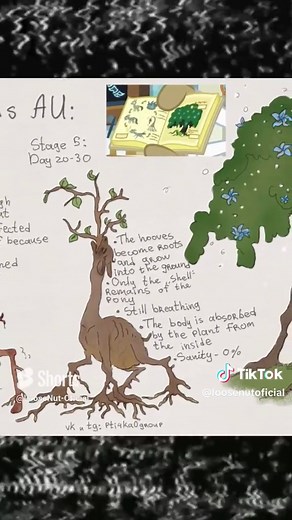 s AU:
Stage 5:
Day 20-30
gh
at
fected
f because
med
• The hooves
become roots
and grow
into the ground
• Only the "shell"
remains of the
pony
• Still breathing
• The body is absorbed
by the plant from
the inside
• Sanity - 0%
Shorts
@LooseNut-Official
TikTok
@loosenutoficial
vk и tg: Pti4kaOgroup